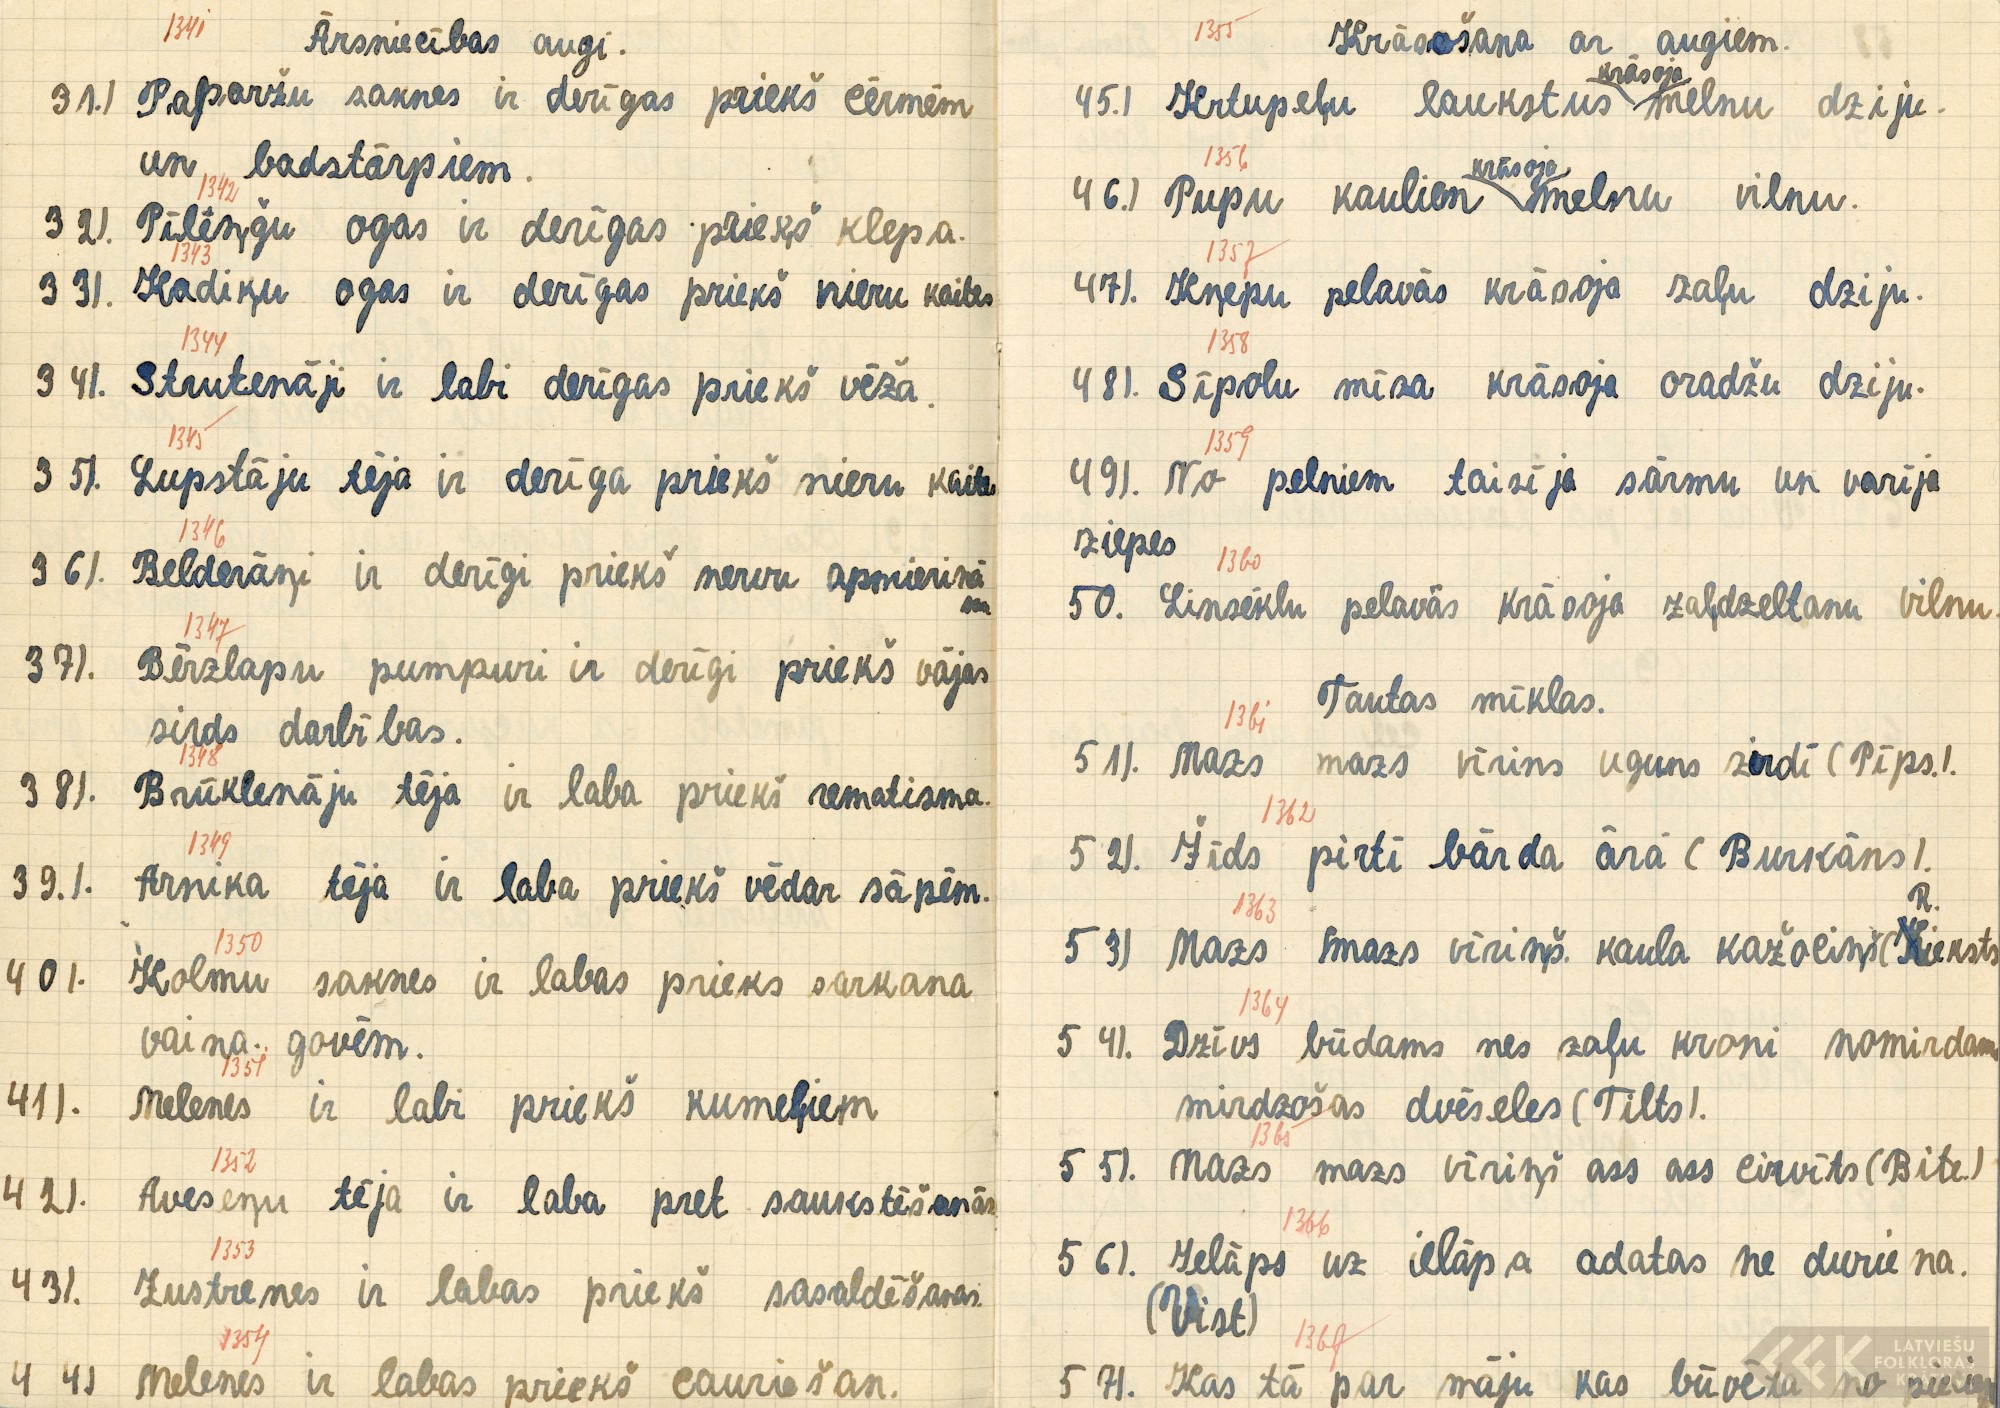 1341
Ārsniecības augi.
31.) Paparžu saknes ir derīgas priekš cērmēm
un badstārpiem.
1342
32). Pīlēņģu ogas ir derīgas priekš klepa.
1343
33). Kadiķu ogas ir derīgas priekš nieru kaites
1344
34). Strutenāji ir labi derīgas priekš vēža.
1345
35). Lupstāju tēja ir derīga priekš nieru kaites
1346
36). Belderāņi ir derīgi priekš nervu apmierinā
1347
37). Bērzlapu pumpuri ir derīgi priekš vājas
sirds darbības.
1348
38). Brūklenāju tēja ir laba priekš rematisma.
1349
39.). Arnika tēja ir laba priekš vēdar sāpēm.
1350
40). Kolmu saknes ir labas prieks sarkana
vaina. govēm.
1351
41). Melenes ir labi priekš kumeļiem
1352
42). Aveseņu tēja ir laba pret saukstēšanās
1353
43). Zustrenes ir labas priekš sasaldēšanas.
1354
44) Melenes ir labas priekš caurješan.
1355
Krāsošana ar augiem.
krāsoja
45.) Krtupeļu laukstus melnu dziju.
1356
krāsoja
46.) Pupu kauliem melnu vilnu.
1357
47). Kņepu pelavās krāsoja zaļu dziju.
1358
48). Sīpolu mīza krāsoja oradžu dziju.
1359
49). No pelniem taisīja sārmu un varīja
ziepes
1360
50. Linsēklu pelavās krāsoja zaļdzeltanu vilnu.
Tautas mīklas.
1361
51). Mazs mazs vīrins uguns zirdī (Pīps.).
1362
52). Žīds pirtī bārda ārā (Burkāns).
1363
R.
53) Mazs mazs vīriņš. kaula kažociņš (Rieksts
1364
54). Dzīvs būdams nes zaļu kroni nomirdams
mirdzošas dvēseles (Tilts).
1365
55). Mazs mazs vīriņš ass ass cirvīts (Bite.)
1366
56). Ielāps uz ielāpa adatas ne duriena.
(Vist)
1367
57). Kas tā par māju kas būvēta no
LATVIEŠU
FOLKLORAS